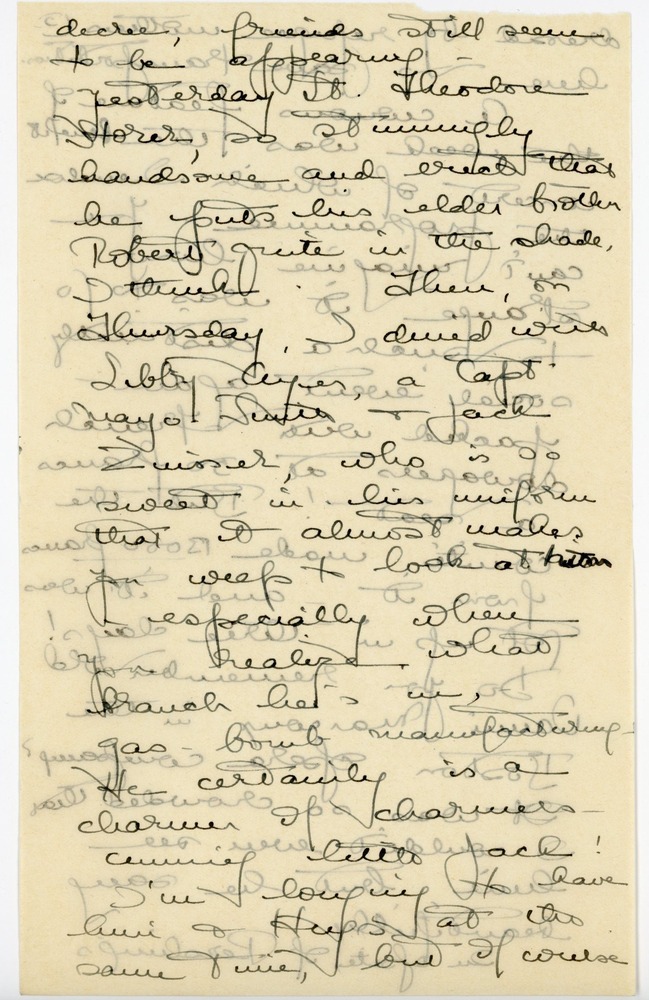 decree, friends still seem
to be appearing -
yesterday Lt. Theodore
Storer, so stunningly
handsome and erect that
he puts his elder brother
Robert quite in the shade,
I think. Then, on
Thursday, I dined with
Libby, a Capt.
Mayo & Jack
Zinsser, who is so
sweet in his uniform
that it almost makes
you weep to look at him
- especially when
you realize what
branch he's in,
gas-bomb manufacturing -
He certainly is a
charmer of charmers -
cunning little Jack!
I'm longing to have
him & at the
same time, but of course